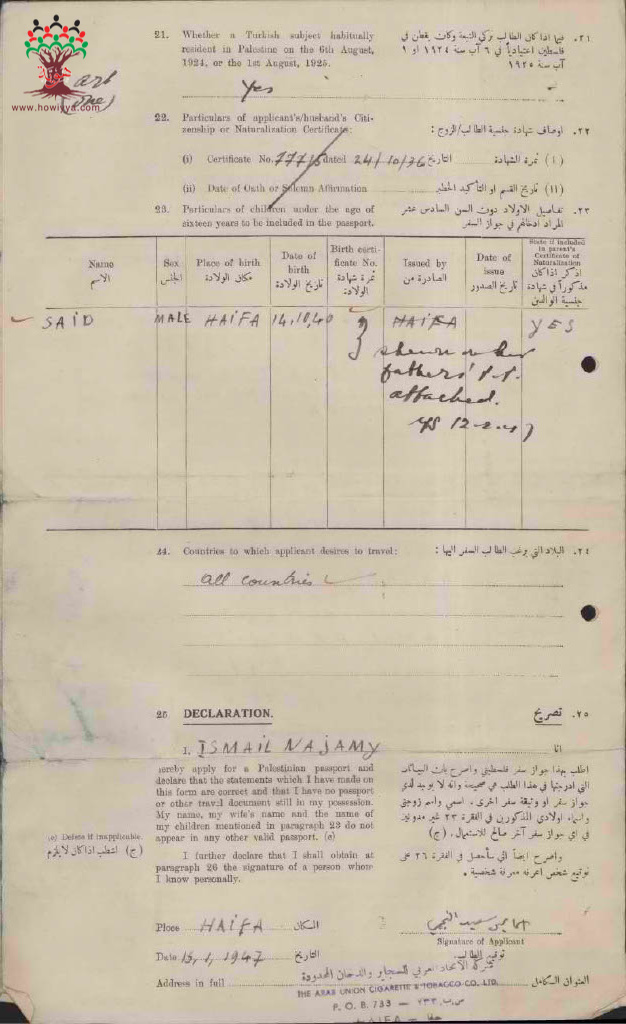 21. Whether a Turkish subject habitually
resident in Palestine on the 6th August,
1924, or the 1st August, 1925.
٢١. فيما اذا كان الطالب تركي التبعة وكان يقطن في
فلسطين اعتيادياً في ٦ آب سنة ١٩٢٤ او ١
آب سنة ١٩٢٥
Yes
www.howiyya.com
(one)
22. Particulars of applicant's/husband's Citi-
zenship or Naturalization Certificate:
٢٢. اوصاف شهادة جنسية الطالب/الزوج:
(i) Certificate No. dated 24/10/36 التاريخ (I) نمرة الشهادة
(ii) Date of Oath or Solemn Affirmation (II) تاريخ القسم او التأكيد الخطير
23. Particulars of children under the age of
sixteen years to be included in the passport.
٢٣. تفاصيل الاولاد دون السن السادس عشر
المراد ادخالهم في جواز السفر
Name
الاسم
Sex
الجنس
Place of birth
مكان الولادة
Date of
birth
تاريخ الولادة
Birth certi-
ficate No.
نمرة شهادة
الولادة
Issued by
الصادرة من
Date of
issue
تاريخ الصدور
State if included
in parent's
Certificate of
Naturalization
اذكر اذا كان
مذكوراً في شهادة
جنسية الوالدين
SAID MALE HAIFA 14,10,40 HAIFA YES
shewn on her
fathers' P.P.
attached.
12-2-47
24. Countries to which applicant desires to travel: ٢٤. البلاد التي يرغب الطالب السفر اليها:
all countries
25. DECLARATION. ٢٥. تصريح
I, ISMAIL NAJAMY انا
hereby apply for a Palestinian passport and
declare that the statements which I have made on
this form are correct and that I have no passport
or other travel document still in my possession.
My name, my wife's name and the name of
my children mentioned in paragraph 23 do not
appear in any other valid passport. (c)
(c) Delete if inapplicable.
(ج) اشطب اذا كان لا يلزم
I further declare that I shall obtain at
paragraph 26 the signature of a person whom
I know personally.
اطلب بهذا جواز سفر فلسطيني واصرح بان البيانات
التي ادرجتها في هذا الطلب هي صحيحة وانه لا يوجد لدي
جواز سفر او وثيقة سفر اخرى. اسمي واسم زوجتي
واسماء اولادي المذكورين في الفقرة ٢٣ غير مدونين
في اي جواز سفر آخر صالح للاستعمال. (ج)
واصرح ايضاً اني سأحصل في الفقرة ٢٦ على
توقيع شخص اعرفه معرفة شخصية.
Place HAIFA المكان
Signature of Applicant
توقيع الطالب
Date 15,1,1947 التاريخ
Address in full العنوان الكامل
شركة الاتحاد العربي للسجاير والدخان المحدودة
THE ARAB UNION CIGARETTE & TOBACCO CO. LTD.
P. O. B. 733 — ص.ب. ٧٣٣
HAIFA — حيفا